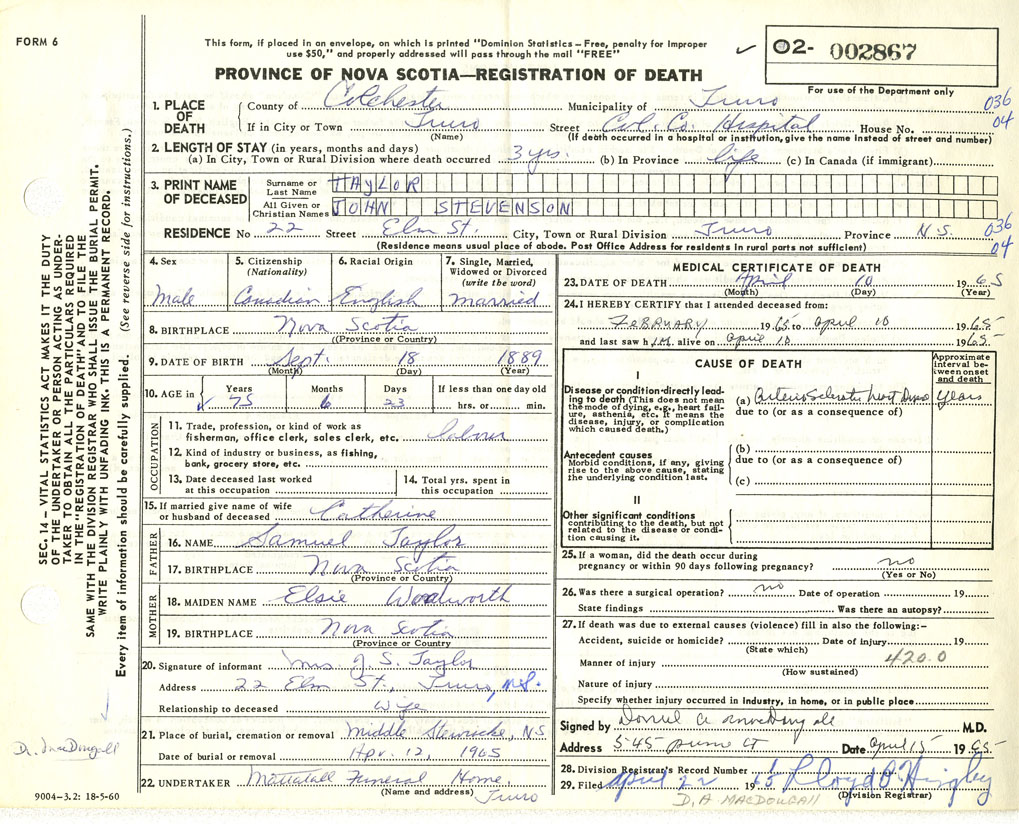 FORM 6
This form, if placed in an envelope, on which is printed "Dominion Statistics – Free, penalty for improper
use $50," and properly addressed will pass through the mail "FREE"
✓ 02- 002867
For use of the Department only
PROVINCE OF NOVA SCOTIA—REGISTRATION OF DEATH
1. PLACE OF DEATH
County of Colchester Municipality of Truro 036
If in City or Town Truro Street Col. Co. Hospital House No. 04
(Name) (If death occurred in a hospital or institution, give the name instead of street and number)
2. LENGTH OF STAY (in years, months and days)
(a) In City, Town or Rural Division where death occurred 3 yrs. (b) In Province life (c) In Canada (if immigrant)
3. PRINT NAME OF DECEASED
Surname or Last Name TAYLOR
All Given or Christian Names JOHN STEVENSON
RESIDENCE No 22 Street Elm St. City, Town or Rural Division Truro Province N.S. 036
(Residence means usual place of abode. Post Office Address for residents in rural parts not sufficient) 04
4. Sex
Male
5. Citizenship (Nationality)
Canadian
6. Racial Origin
English
7. Single, Married, Widowed or Divorced (write the word)
married
8. BIRTHPLACE Nova Scotia
(Province or Country)
9. DATE OF BIRTH Sept. 18 1889
(Month) (Day) (Year)
10. AGE in Years Months Days If less than one day old
✓ 75 6 23 hrs. or min.
OCCUPATION
11. Trade, profession, or kind of work as
fisherman, office clerk, sales clerk, etc. labour
12. Kind of industry or business, as fishing,
bank, grocery store, etc.
13. Date deceased last worked
at this occupation
14. Total yrs. spent in
this occupation
15. If married give name of wife
or husband of deceased Catherine
FATHER
16. NAME Samuel Taylor
17. BIRTHPLACE Nova Scotia
(Province or Country)
MOTHER
18. MAIDEN NAME Elsie Woodworth
19. BIRTHPLACE Nova Scotia
(Province or Country)
20. Signature of informant Mrs. J. S. Taylor
Address 22 Elm St., Truro, N.S.
Relationship to deceased Wife
21. Place of burial, cremation or removal Middle Stewiacke, N.S
Date of burial or removal Apr. 12, 1965
22. UNDERTAKER Mattatall Funeral Home,
(Name and address) Truro
9004-3.2: 18-5-60
MEDICAL CERTIFICATE OF DEATH
23. DATE OF DEATH April 10 1965
(Month) (Day) (Year)
24. I HEREBY CERTIFY that I attended deceased from:
FEBRUARY 1965 to April 10 1965
and last saw him alive on April 10 1965
CAUSE OF DEATH
Approximate interval between onset and death
I
Disease or condition directly leading to death (This does not mean the mode of dying, e.g., heart failure, asthenia, etc. It means the disease, injury, or complication which caused death.)
(a) Arteriosclerotic heart Years
due to (or as a consequence of)
Antecedent causes
Morbid conditions, if any, giving rise to the above cause, stating the underlying condition last.
(b)
due to (or as a consequence of)
(c)
II
Other significant conditions
contributing to the death, but not related to the disease or condition causing it.
25. If a woman, did the death occur during
pregnancy or within 90 days following pregnancy? no
(Yes or No)
26. Was there a surgical operation? no Date of operation 19
State findings Was there an autopsy?
27. If death was due to external causes (violence) fill in also the following:–
Accident, suicide or homicide? Date of injury 19
(State which)
Manner of injury 420.0
(How sustained)
Nature of injury
Specify whether injury occurred in industry, in home, or in public place
Signed by M.D.
Address 545 Prince St Date April 15 1965
28. Division Registrar's Record Number
29. Filed April 22 1965 Lloyd
D.A MACDOUGALL (Division Registrar)
SEC. 14 – VITAL STATISTICS ACT MAKES IT THE DUTY
OF THE UNDERTAKER OR PERSON ACTING AS UNDER-
TAKER TO OBTAIN ALL THE PARTICULARS REQUIRED
IN THE "REGISTRATION OF DEATH" AND TO FILE THE
SAME WITH THE DIVISION REGISTRAR WHO SHALL ISSUE THE BURIAL PERMIT.
WRITE PLAINLY WITH UNFADING INK. THIS IS A PERMANENT RECORD.
Every item of information should be carefully supplied. (See reverse side for instructions.)
Dr. MacDougall